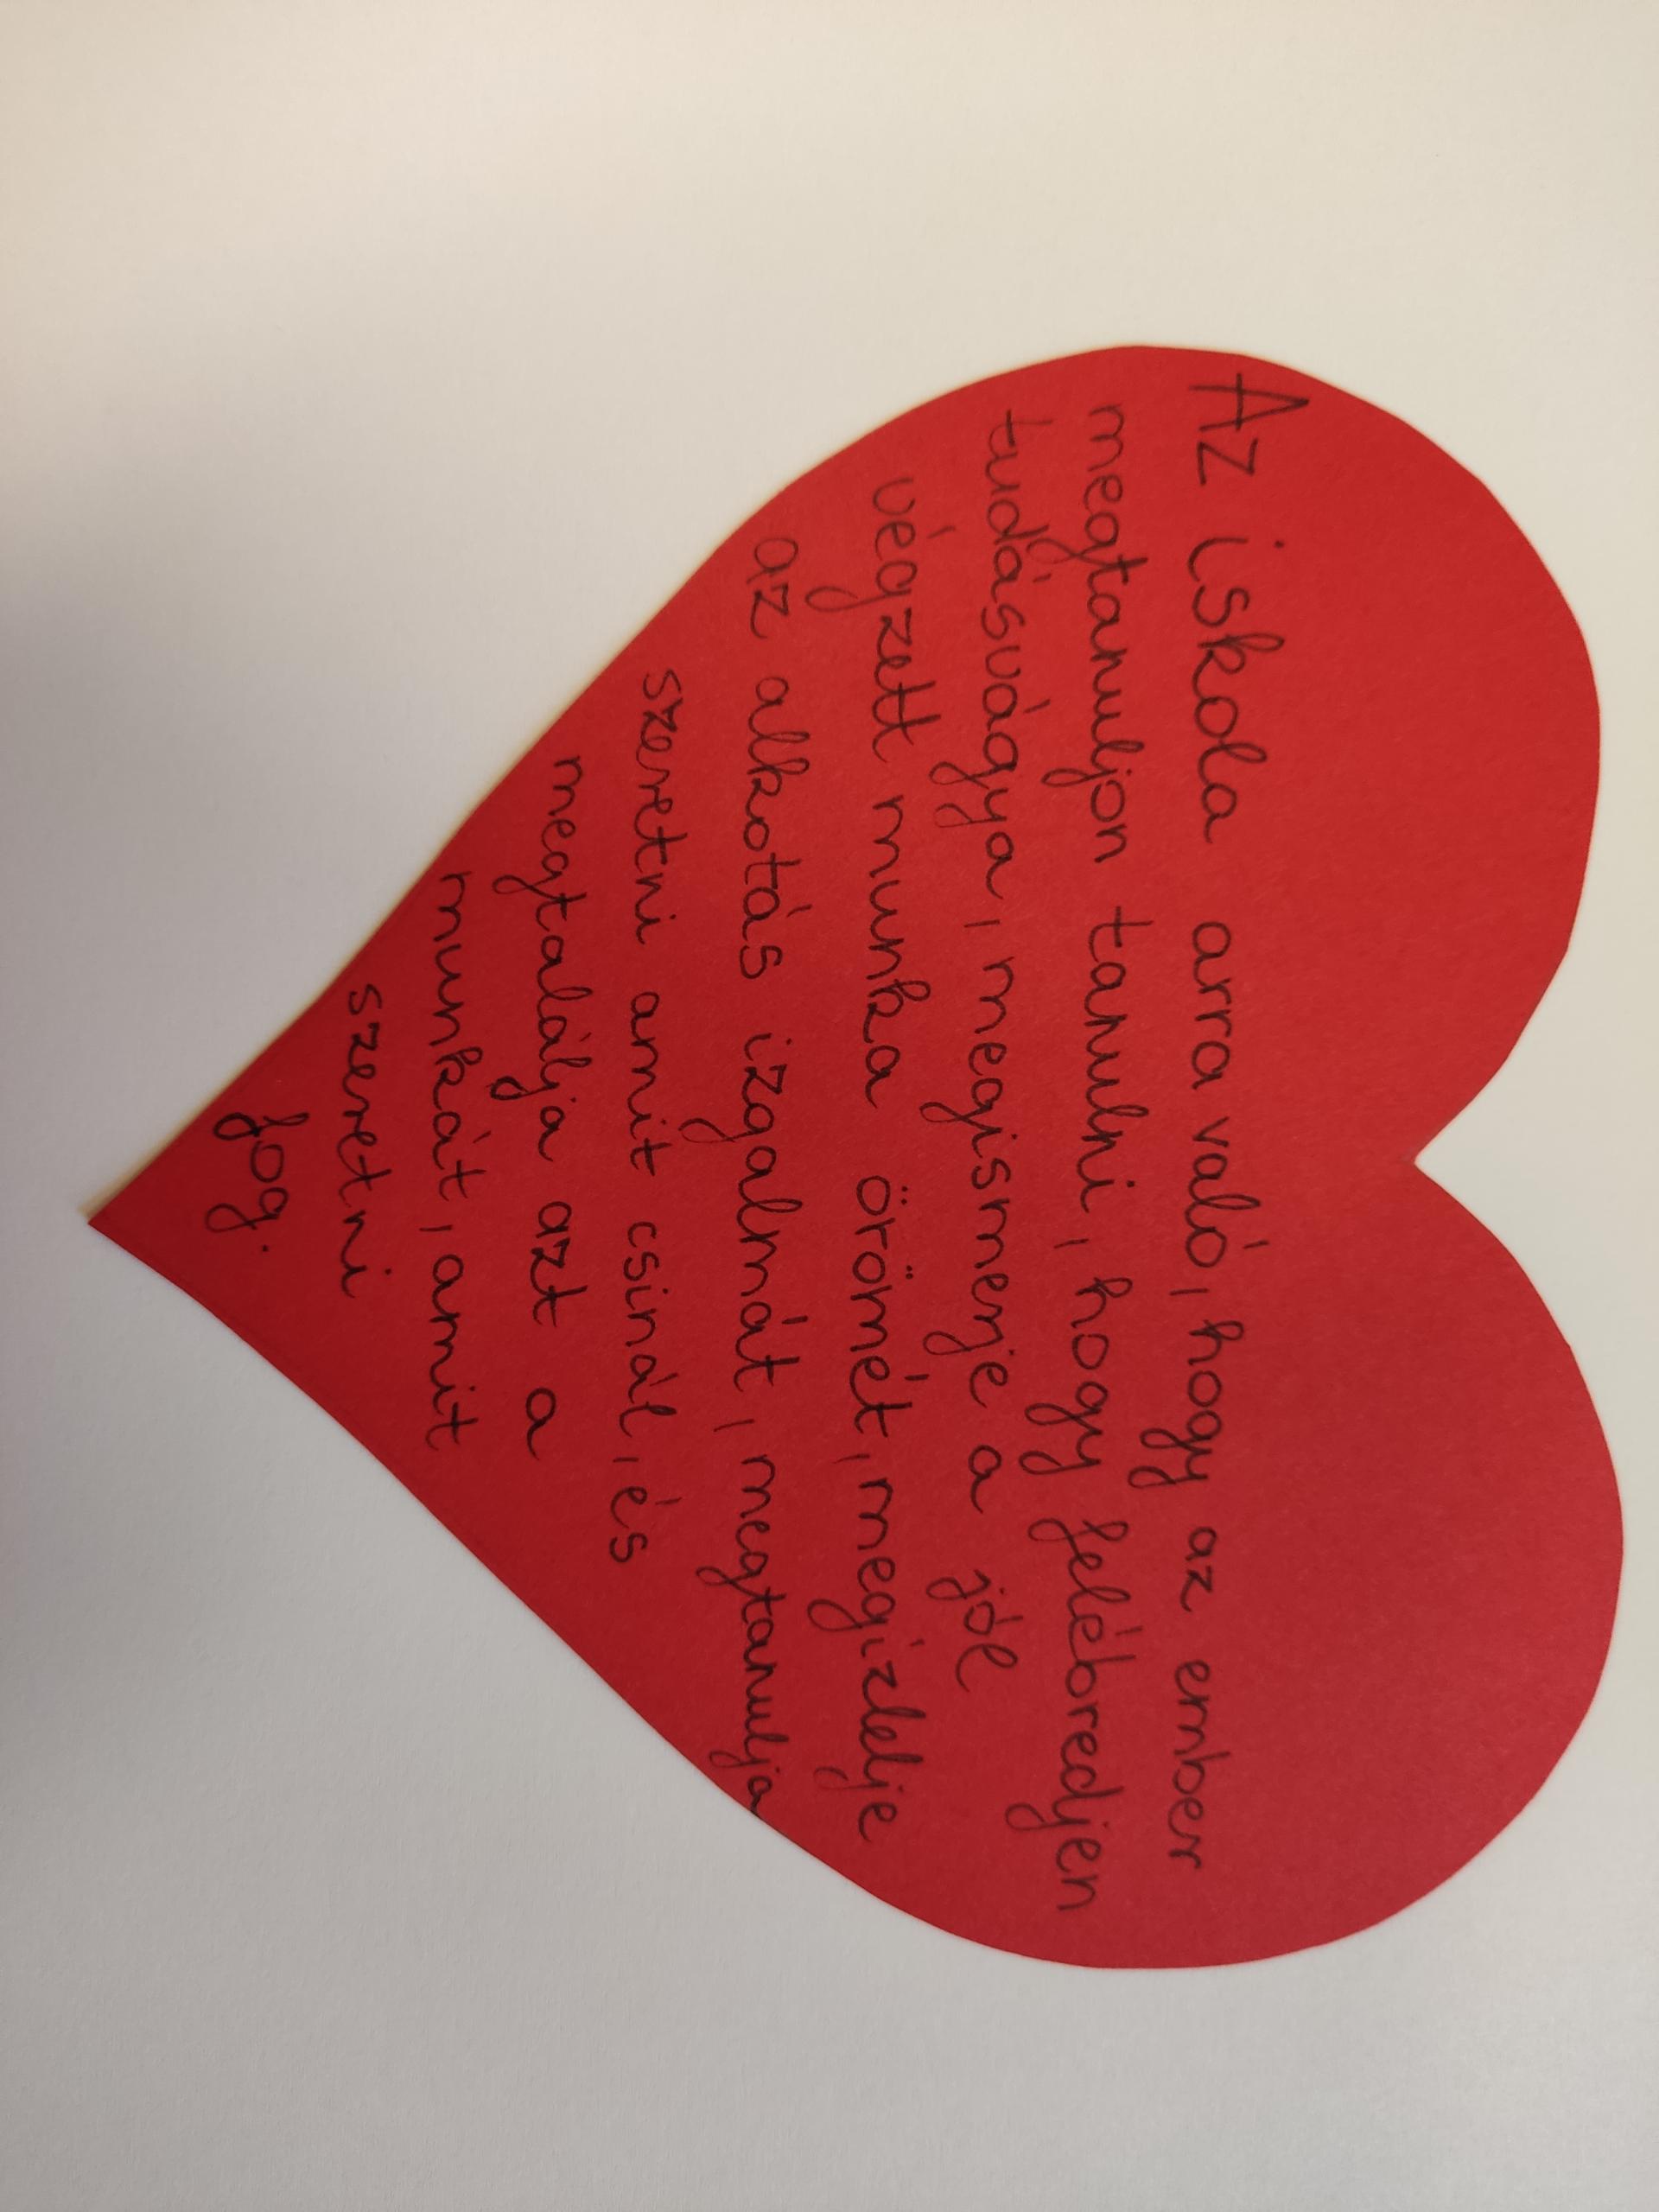 Az iskola arra való, hogy az ember
megtanuljon tanulni, hogy felébredjen
tudásvágya, megismerje a jól
végzett munka örömét, megízlelje
az alkotás izgalmát, megtanulja
szeretni amit csinál, és
megtalálja azt a
munkát, amit
szeretni
fog.